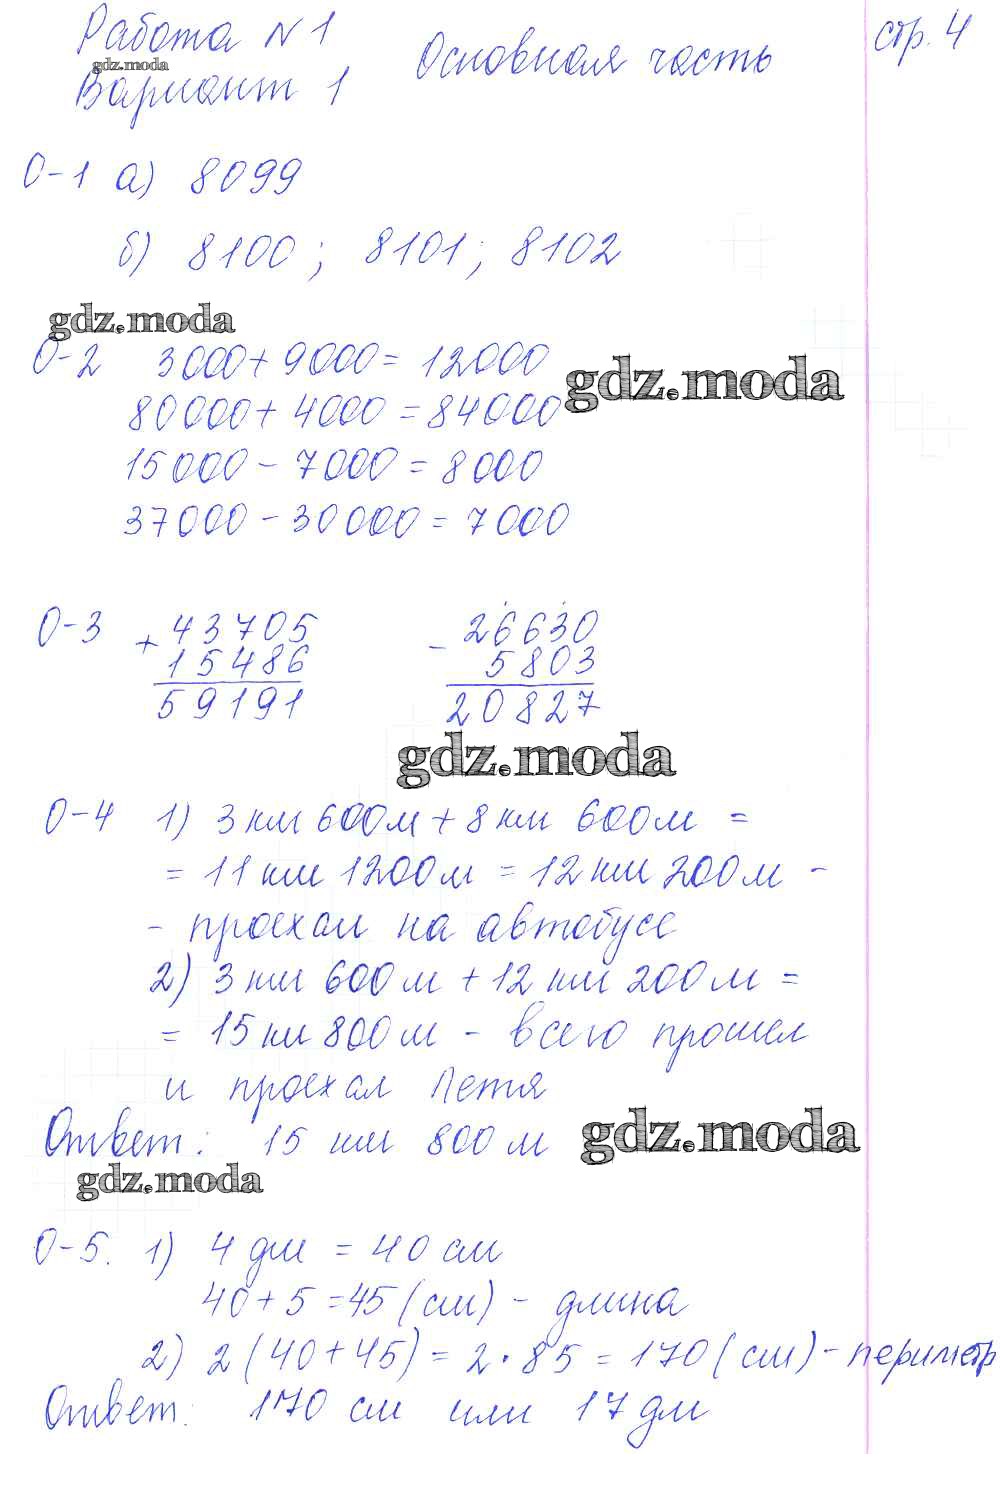 Работа N 1
стр. 4
Основная часть
gdz.moda
Вариант 1
О-1 а) 8099
б) 8100; 8101; 8102
gdz.moda
О-2 3000+9000=12000
gdz.moda
80000+4000=84000
15000-7000=8000
37000-30000=7000
О-3 + 43705 - 26630
15486 5803
59191 20827
gdz.moda
О-4 1) 3 км 600 м + 8 км 600 м =
= 11 км 1200 м = 12 км 200 м -
- проехал на автобусе
2) 3 км 600 м + 12 км 200 м =
= 15 км 800 м - всего прошел
и проехал Петя
Ответ: 15 км 800 м
gdz.moda
gdz.moda
О-5. 1) 4 дм = 40 см
40+5=45 (см) - длина
2) 2(40+45)=2·85=170 (см) - периметр
Ответ: 170 см или 17 дм